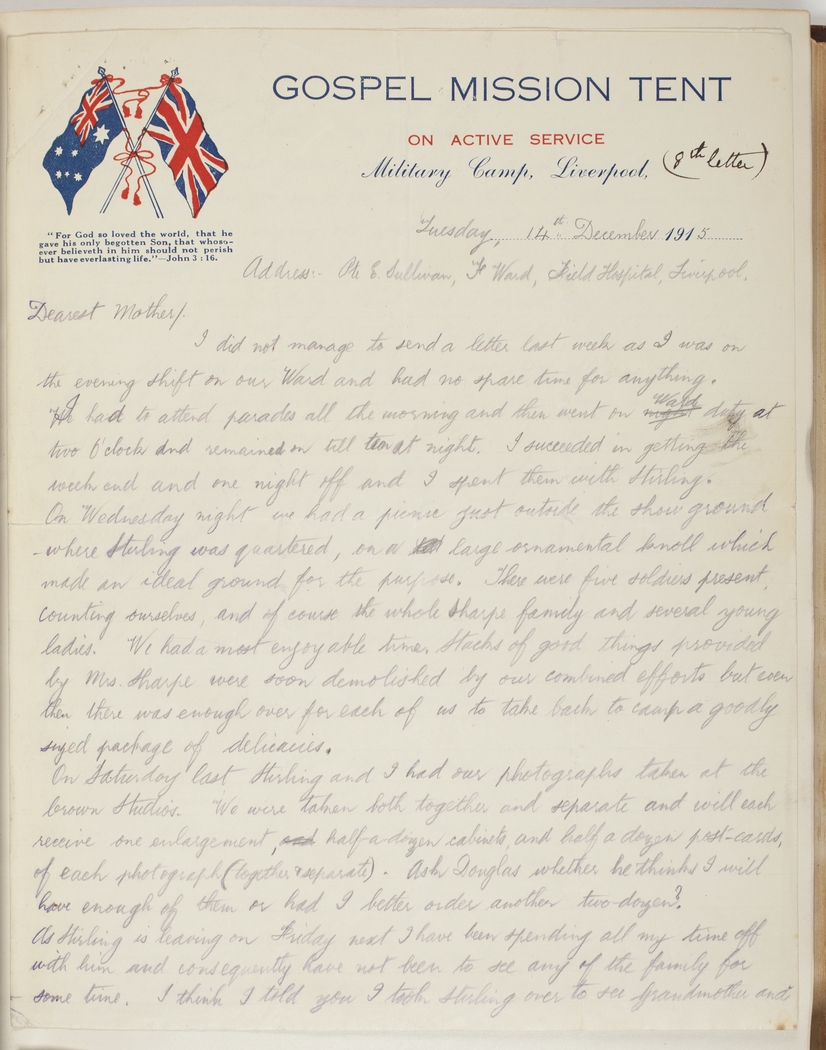 GOSPEL MISSION TENT
ON ACTIVE SERVICE
Military Camp, Liverpool, (8th letter)
"For God so loved the world, that he
gave his only begotten Son, that whoso-
ever believeth in him should not perish
but have everlasting life."—John 3 : 16.
Tuesday, 14th December 1915
Address:- Pte E. Sullivan, F Ward, Field Hospital, Liverpool.
Dearest Mother/.
I did not manage to send a letter last week as I was on
the evening shift on our Ward and had no spare time for anything.
I had to attend parades all the morning and then went on night Ward duty at
two O'clock and remained on till ten at night. I succeeded in getting the
week end and one night off and I spent them with Stirling.
On Wednesday night we had a picnic just outside the show ground
-where Stirling was quartered, on a large ornamental knoll which
made an ideal ground for the purpose. There were five soldiers present,
counting ourselves, and of course the whole Sharpe family and several young
ladies. We had a most enjoyable time. Stacks of good things provided
by Mrs. Sharpe were soon demolished by our combined efforts but even
then there was enough over for each of us to take back to camp a goodly
sized package of delicacies.
On Saturday last Stirling and I had our photographs taken at the
Crown Studios. We were taken both together and separate and will each
receive one enlargement, and half-a-dozen cabinets, and half a dozen post-cards,
of each photograph (together & separate). Ask Douglas whether he thinks I will
have enough of them or had I better order another two-dozen?
As Stirling is leaving on Friday next I have been spending all my time off
with him and consequently have not been to see any of the family for
some time. I think I told you I took Stirling over to see Grandmother and